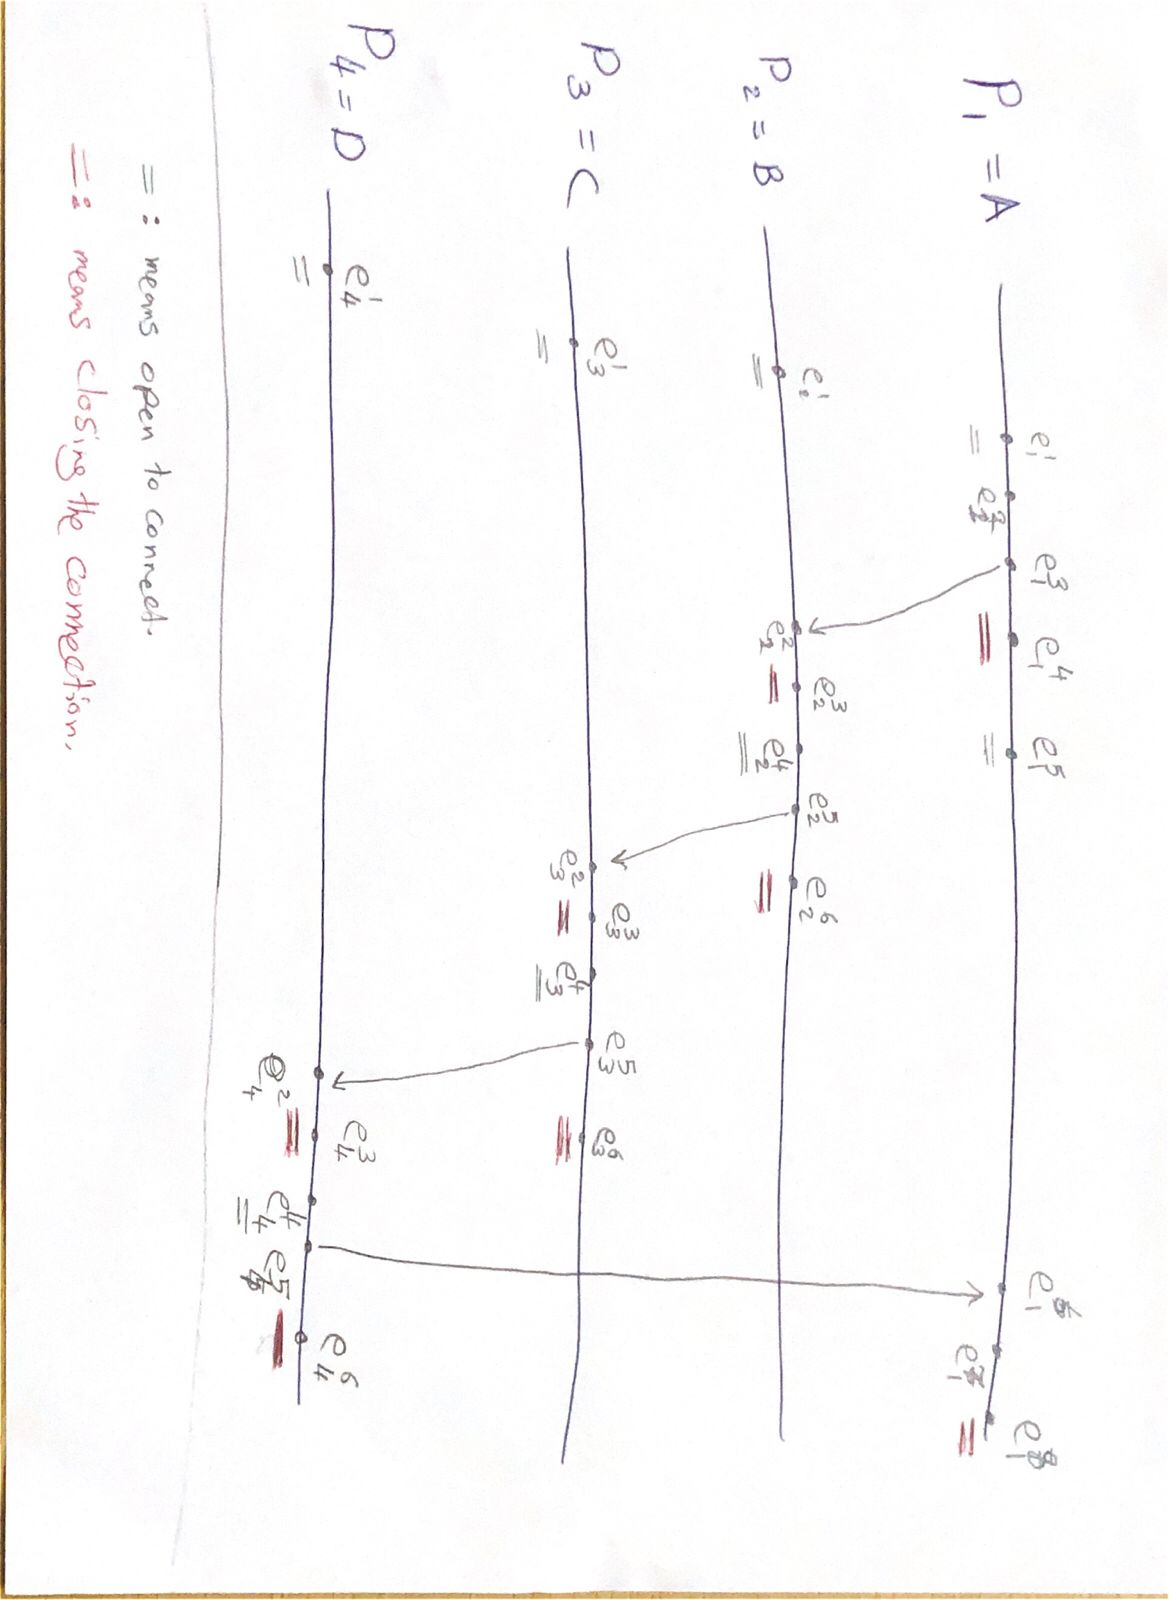 e₁¹ e₁³ e₁⁴ e₁⁵ e₁⁶ e₁⁸
P₁ = A
= e₁² = = e₁⁷ =
e₂¹ e₂³ e₂⁵ e₂⁶
P₂ = B
= e₂² = e₂⁴ =
=
e₃¹ e₃³ e₃⁵ e₃⁶
P₃ = C
= e₃² = e₃⁴ =
=
e₄¹ e₄³ e₄⁶
P₄ = D
= e₄² = e₄⁴ e₄⁵ =
=
= : means open to connect.
= : means closing the connection.